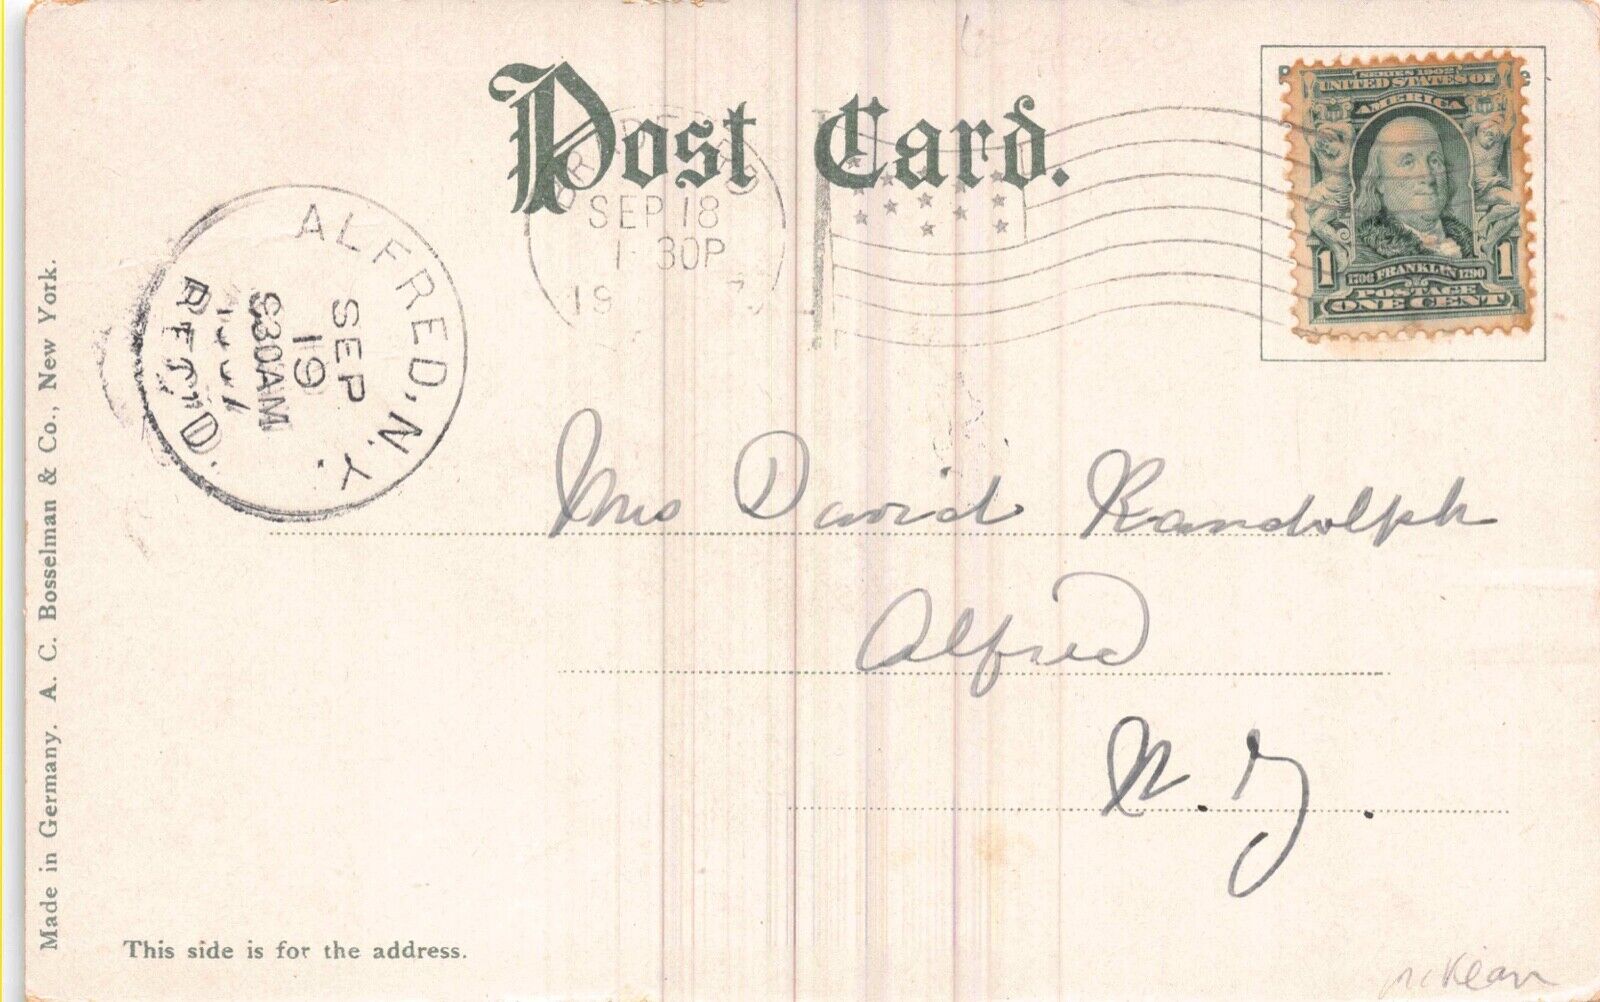 Post Card.
SERIES 1902
UNITED STATES OF
AMERICA
1 1706 FRANKLIN 1790 1
POSTAGE
ONE CENT
BRADFORD
SEP 18
1-30P
19 7
ALFRED, N.Y.
SEP
19
1907
REC'D.
Mrs David Randolph
Alfred
N. Y.
Made in Germany. A. C. Bosselman & Co., New York.
This side is for the address.
McKean